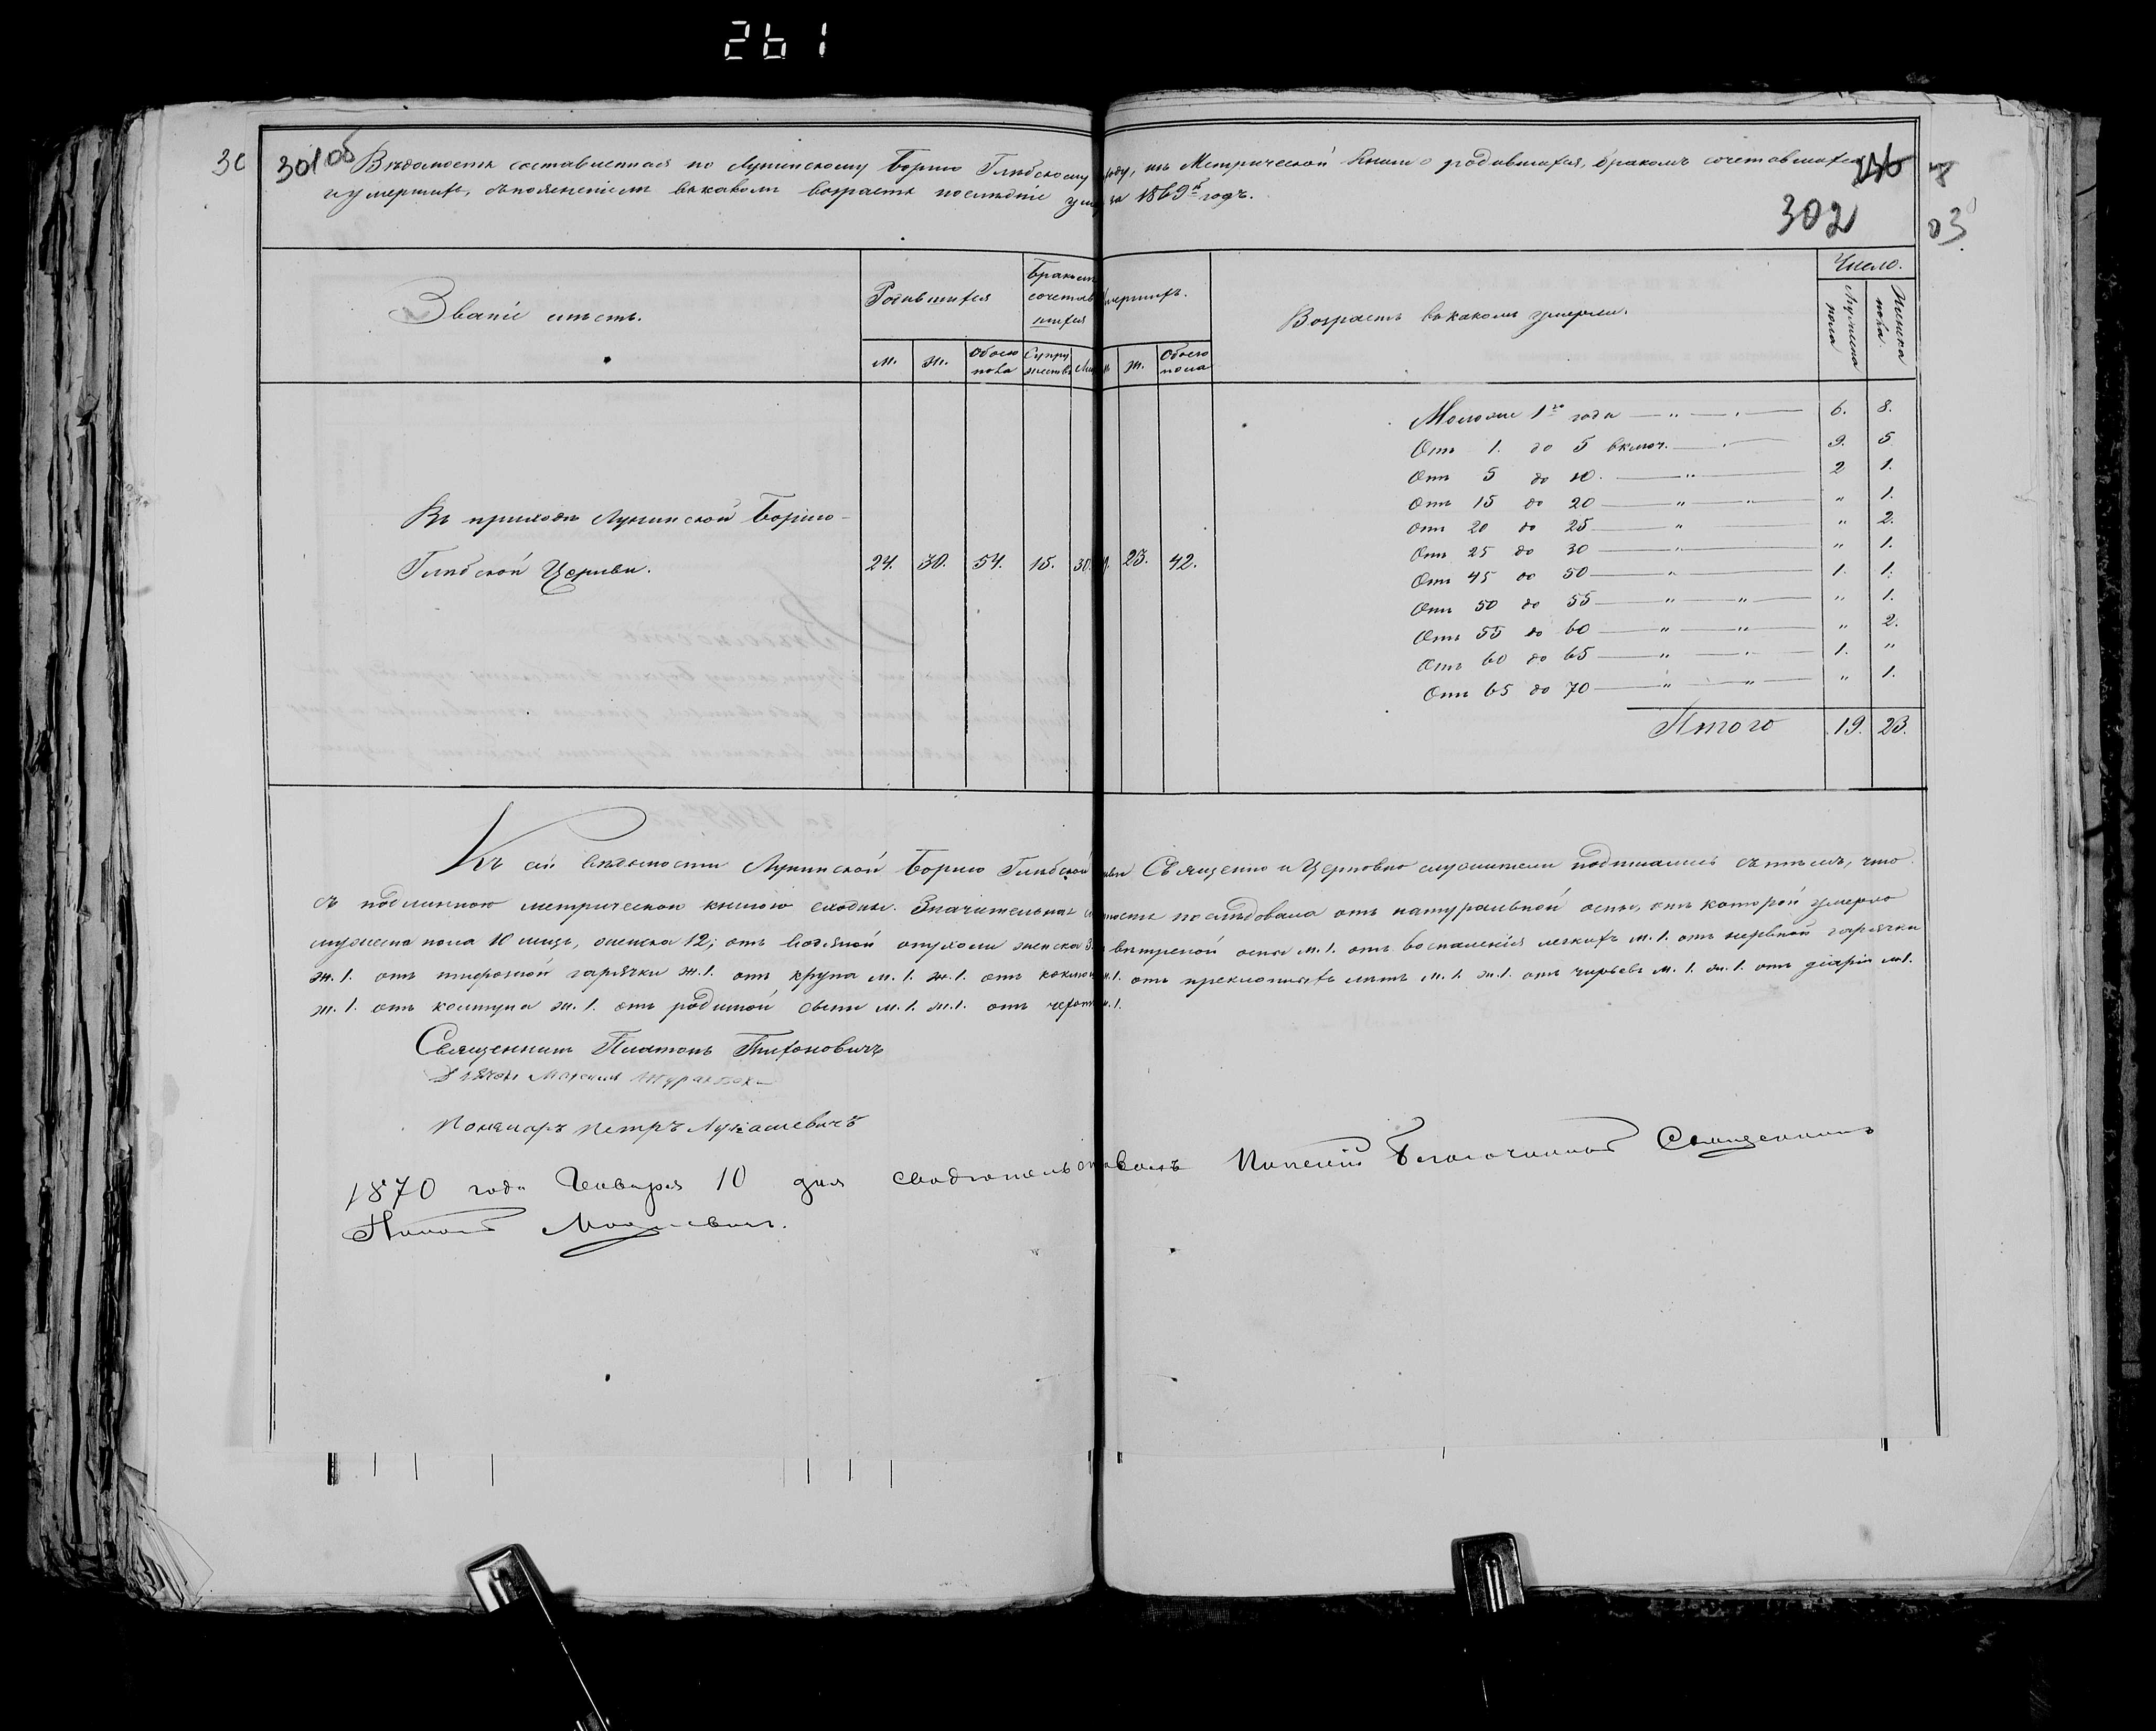 261
30
301об
Вѣдомость составленная по Лунинскому Борисо Глѣбскому
и умершихъ, съ поясненіемъ въ какомъ возрастѣ послѣдніе
изъ Метрической Книги о родившихся, бракомъ сочетавшихся
за 1869й годъ.
302
03
Званіе мѣстъ.
Родившихся
М.
Ж.
Обоего пола
Бракомъ сочетав
шихся
Супру
жествъ
умершихъ.
Ж.
Обоего пола
Возрастъ въ какомъ умерли.
Число.
Мужеска пола
Женска пола
Въ приходѣ Лунинской Борисо-
Глѣбской Церкви.
24. 30. 54. 15. 30. 23. 42.
Моложе 1го года — „ — 6. 8.
Отъ 1. до 5 включ. — 9. 5
Отъ 5 до 10. — „ — 2 1.
Отъ 15 до 20 — „ — „ — „ 1.
Отъ 20 до 25 — „ — „ 2.
Отъ 25 до 30 — „ — „ 1.
Отъ 45 до 50 — „ — 1. 1.
Отъ 50 до 55 — „ — „ — „ 1.
Отъ 55 до 60 — „ — „ — „ 2.
Отъ 60 до 65 — „ — „ — 1. „
Отъ 65 до 70 — „ — „ — „ 1.
Итого 19. 23.
Къ сей вѣдомости Лунинской Борисо Глѣбской Священно и Церковно служители подписались съ тѣмъ, что
съ подлинною метрическою книгою сходны. Значительная послѣдовала отъ натуральной оспы, отъ которой умерло
мужеска пола 10 лицъ, женска 12; отъ водяной опухоли женска 3. вѣтреной оспы м. 1. отъ воспаленія легкихъ м. 1. отъ нервной горячки
ж. 1. отъ тифозной горячки ж. 1. отъ крупа м. 1. ж. 1. отъ коклюша 1. отъ преклонныхъ лѣтъ м. 1. ж. 1. отъ чирьевъ м. 1. ж. 1. отъ діаріи м 1.
ж. 1. отъ колтуна ж. 1. отъ родимой м. 1. ж. 1. отъ чехотки 1.
Священникъ Платонъ Тихоновичъ
Пономарь Петръ Лукашевичъ
1870 года Января 10 дня свидѣтельствовалъ Пинскій Благочинный Священникъ